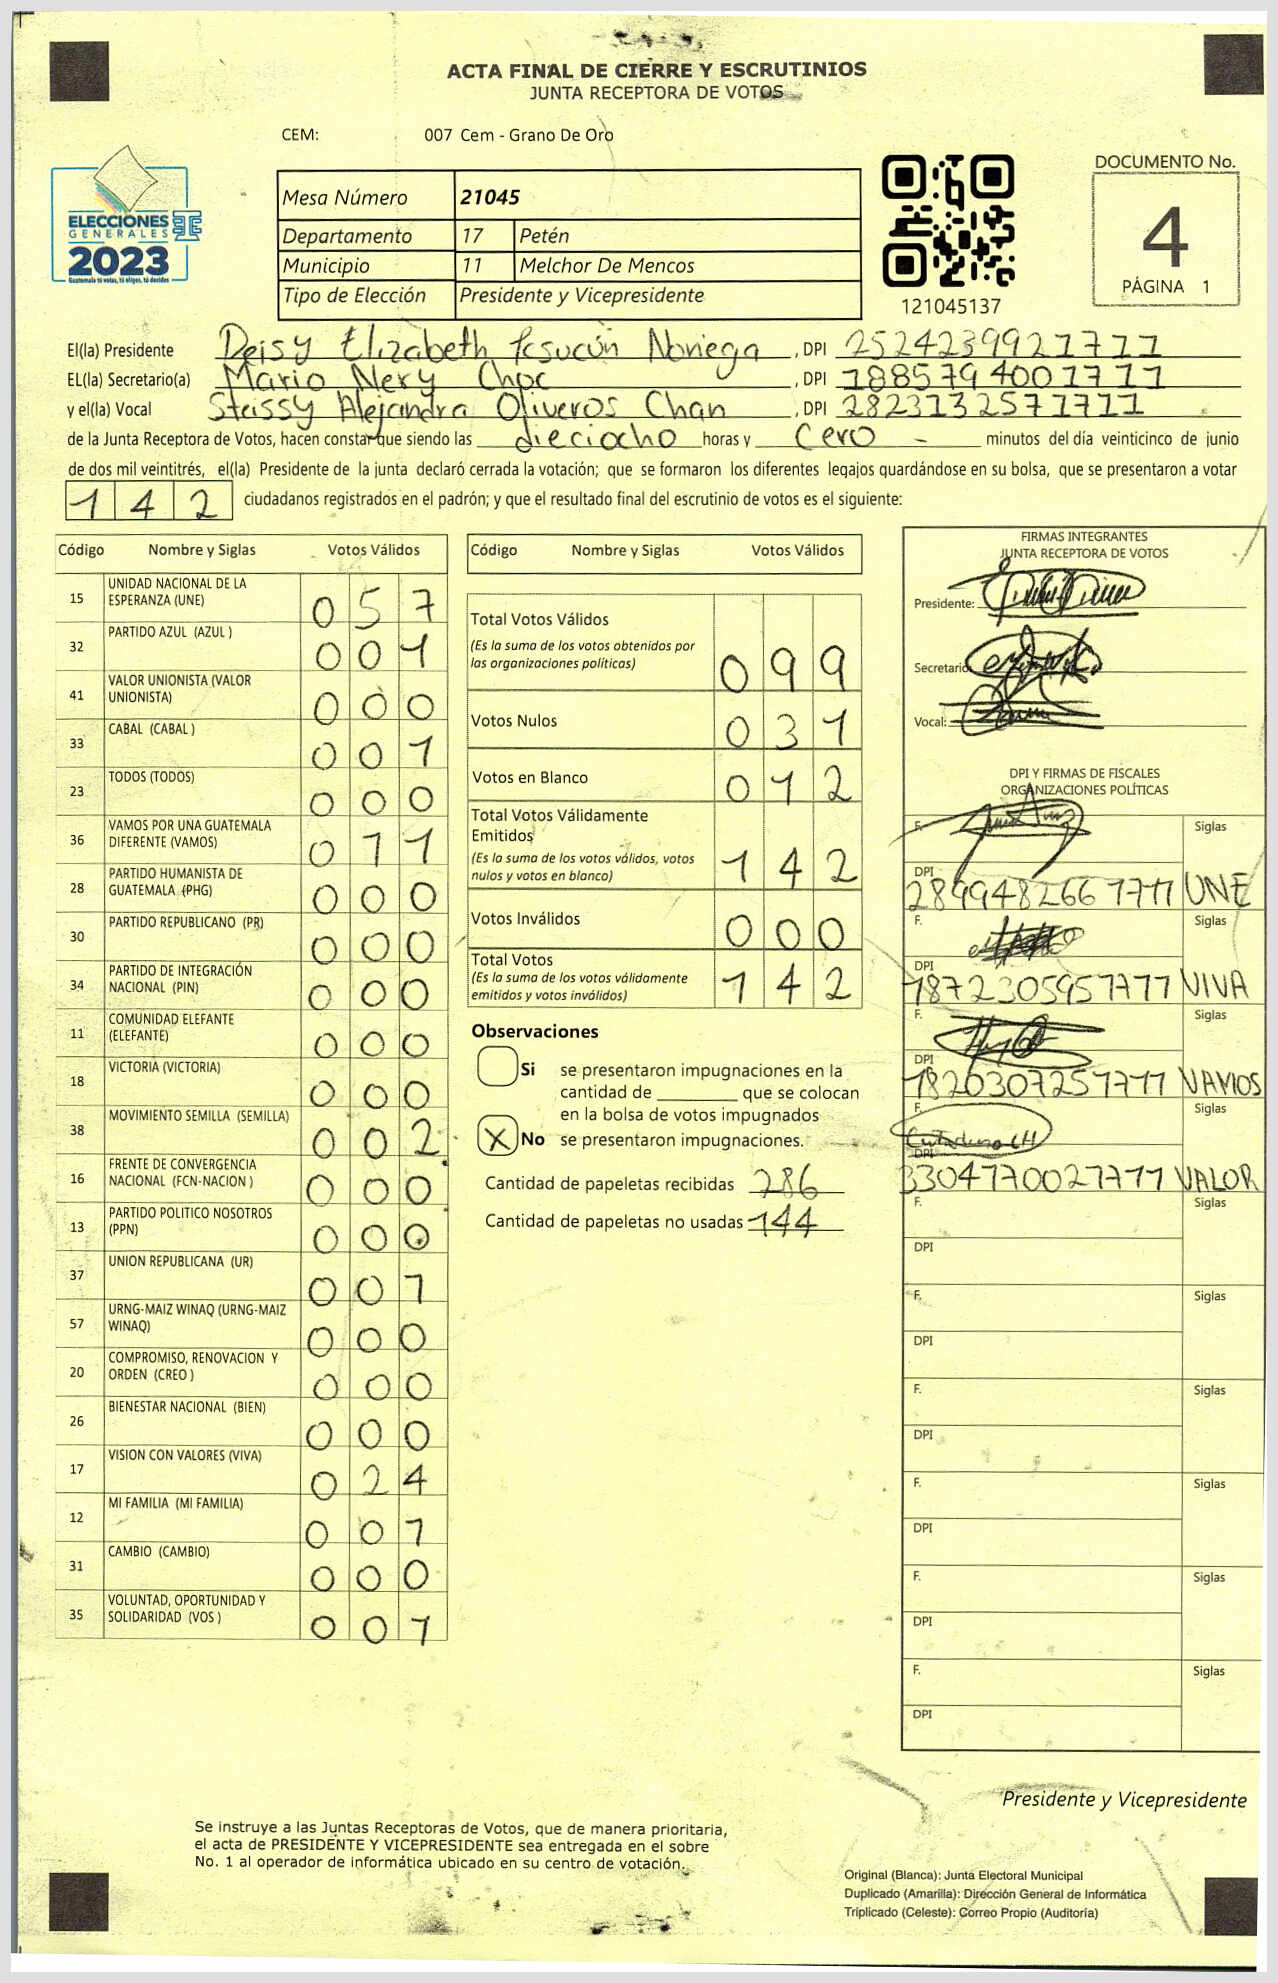 ACTA FINAL DE CIERRE Y ESCRUTINIOS
JUNTA RECEPTORA DE VOTOS
CEM: 007 Cem - Grano De Oro
ELECCIONES
GENERALES
2023
Guatemala tú votas, tú eliges, tú decides
Mesa Número 21045
Departamento 17 Petén
Municipio 11 Melchor De Mencos
Tipo de Elección Presidente y Vicepresidente
121045137
DOCUMENTO No.
4
PÁGINA 1
El(la) Presidente Deisy Elizabeth Noriega , DPI 2524239921711
EL(la) Secretario(a) Mario Nery Choc , DPI 1885794001711
y el(la) Vocal Steissy Alejandra Oliveros Chan , DPI 2823132571711
de la Junta Receptora de Votos, hacen constar que siendo las dieciocho horas y cero - minutos del día veinticinco de junio
de dos mil veintitrés, el(la) Presidente de la junta declaró cerrada la votación; que se formaron los diferentes legajos quardándose en su bolsa, que se presentaron a votar
142 ciudadanos registrados en el padrón; y que el resultado final del escrutinio de votos es el siguiente:
Código Nombre y Siglas Votos Válidos
15 UNIDAD NACIONAL DE LA ESPERANZA (UNE) 057
32 PARTIDO AZUL (AZUL ) 001
41 VALOR UNIONISTA (VALOR UNIONISTA) 000
33 CABAL (CABAL ) 001
23 TODOS (TODOS) 000
36 VAMOS POR UNA GUATEMALA DIFERENTE (VAMOS) 011
28 PARTIDO HUMANISTA DE GUATEMALA (PHG) 000
30 PARTIDO REPUBLICANO (PR) 000
34 PARTIDO DE INTEGRACIÓN NACIONAL (PIN) 000
11 COMUNIDAD ELEFANTE (ELEFANTE) 000
18 VICTORIA (VICTORIA) 000
38 MOVIMIENTO SEMILLA (SEMILLA) 002
16 FRENTE DE CONVERGENCIA NACIONAL (FCN-NACION ) 000
13 PARTIDO POLITICO NOSOTROS (PPN) 000
37 UNION REPUBLICANA (UR) 001
57 URNG-MAIZ WINAQ (URNG-MAIZ WINAQ) 000
20 COMPROMISO, RENOVACION Y ORDEN (CREO ) 000
26 BIENESTAR NACIONAL (BIEN) 000
17 VISION CON VALORES (VIVA) 024
12 MI FAMILIA (MI FAMILIA) 001
31 CAMBIO (CAMBIO) 000
35 VOLUNTAD, OPORTUNIDAD Y SOLIDARIDAD (VOS ) 001
Código Nombre y Siglas Votos Válidos
Total Votos Válidos 099
(Es la suma de los votos obtenidos por
las organizaciones políticas)
Votos Nulos 031
Votos en Blanco 012
Total Votos Válidamente
Emitidos 142
(Es la suma de los votos válidos, votos
nulos y votos en blanco)
Votos Inválidos 000
Total Votos 142
(Es la suma de los votos válidamente
emitidos y votos inválidos)
Observaciones
Si se presentaron impugnaciones en la
cantidad de ________ que se colocan
en la bolsa de votos impugnados
X No se presentaron impugnaciones.
Cantidad de papeletas recibidas 286
Cantidad de papeletas no usadas 144
FIRMAS INTEGRANTES
JUNTA RECEPTORA DE VOTOS
Presidente:
Secretario
Vocal:
DPI Y FIRMAS DE FISCALES
ORGANIZACIONES POLÍTICAS
F. Siglas
DPI 2899482661711 UNE
F. Siglas
DPI 1872305951711 VIVA
F. Siglas
DPI 1820307251711 VAMOS
F. Siglas
DPI 3304770021711 VALOR
F. Siglas
DPI
F. Siglas
DPI
F. Siglas
DPI
F. Siglas
DPI
F. Siglas
DPI
F. Siglas
DPI
Presidente y Vicepresidente
Se instruye a las Juntas Receptoras de Votos, que de manera prioritaria,
el acta de PRESIDENTE Y VICEPRESIDENTE sea entregada en el sobre
No. 1 al operador de informática ubicado en su centro de votación.
Original (Blanca): Junta Electoral Municipal
Duplicado (Amarilla): Dirección General de Informática
Triplicado (Celeste): Correo Propio (Auditoría)